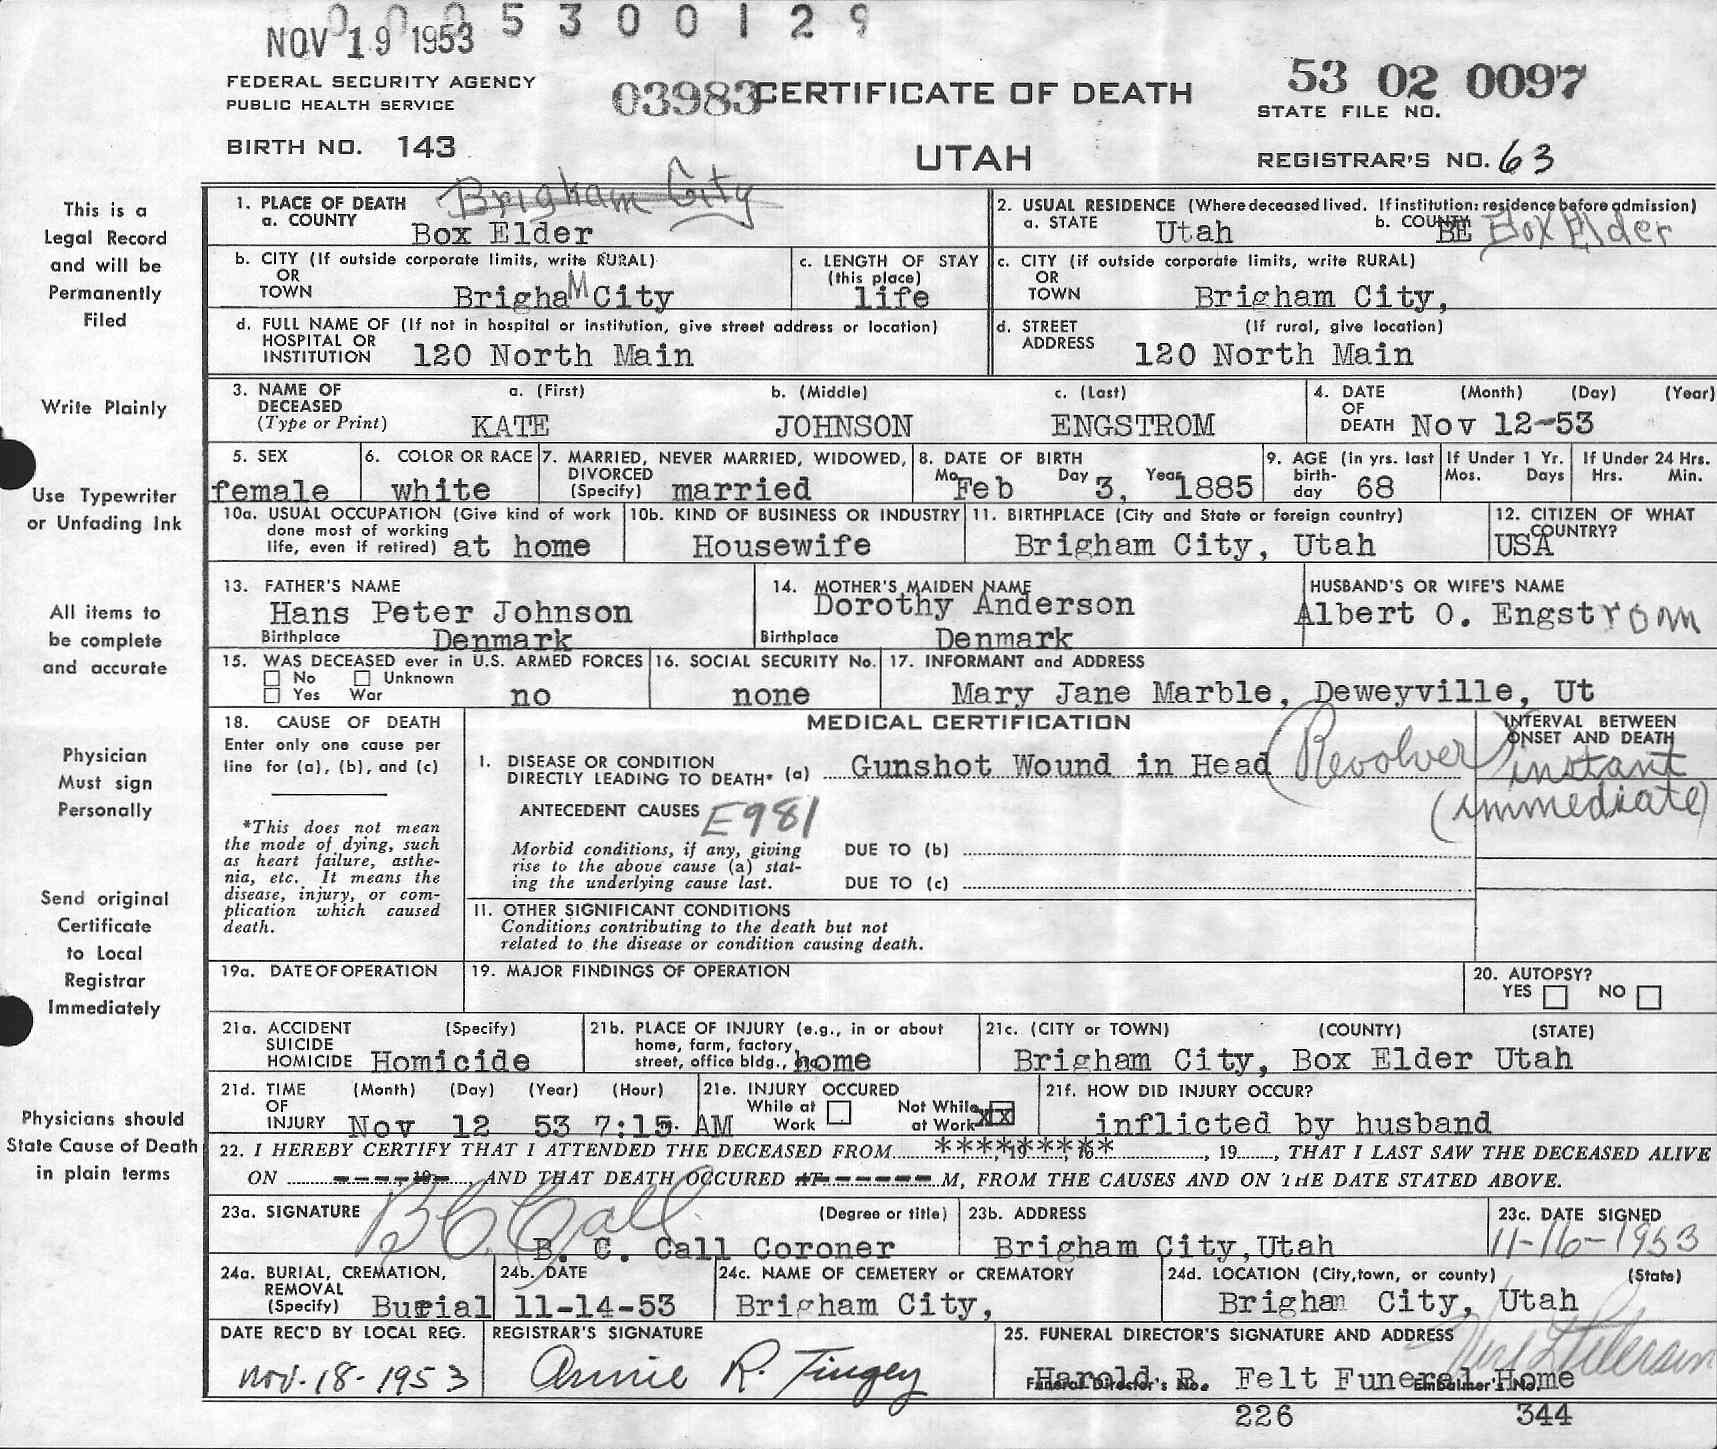 0005300129
NOV 19 1953
FEDERAL SECURITY AGENCY
PUBLIC HEALTH SERVICE
BIRTH NO. 143
03983 CERTIFICATE OF DEATH
UTAH
53 02 0097
STATE FILE NO.
REGISTRAR'S NO. 63
This is a
Legal Record
and will be
Permanently
Filed
Write Plainly
Use Typewriter
or Unfading Ink
All items to
be complete
and accurate
Physician
Must sign
Personally
Send original
Certificate
to Local
Registrar
Immediately
Physicians should
State Cause of Death
in plain terms
1. PLACE OF DEATH
a. COUNTY
Brigham City
Box Elder
2. USUAL RESIDENCE (Where deceased lived. If institution: residence before admission)
a. STATE Utah b. COUNTY BE Box Elder
b. CITY (If outside corporate limits, write RURAL)
OR
TOWN BrighaM City
c. LENGTH OF STAY
(this place)
life
c. CITY (if outside corporate limits, write RURAL)
OR
TOWN Brigham City,
d. FULL NAME OF (If not in hospital or institution, give street address or location)
HOSPITAL OR
INSTITUTION 120 North Main
d. STREET (If rural, give location)
ADDRESS 120 North Main
3. NAME OF
DECEASED
(Type or Print)
a. (First) b. (Middle) c. (Last)
KATE JOHNSON ENGSTROM
4. DATE (Month) (Day) (Year)
OF
DEATH Nov 12-53
5. SEX
female
6. COLOR OR RACE
white
7. MARRIED, NEVER MARRIED, WIDOWED,
DIVORCED
(Specify) married
8. DATE OF BIRTH
Mo. Feb Day 3, Year 1885
9. AGE (in yrs. last
birth-
day 68
If Under 1 Yr.
Mos. Days
If Under 24 Hrs.
Hrs. Min.
10a. USUAL OCCUPATION (Give kind of work
done most of working
life, even if retired) at home
10b. KIND OF BUSINESS OR INDUSTRY
Housewife
11. BIRTHPLACE (City and State or foreign country)
Brigham City, Utah
12. CITIZEN OF WHAT
COUNTRY?
USA
13. FATHER'S NAME
Hans Peter Johnson
Birthplace Denmark
14. MOTHER'S MAIDEN NAME
Dorothy Anderson
Birthplace Denmark
HUSBAND'S OR WIFE'S NAME
Albert O. Engstrom
15. WAS DECEASED ever in U.S. ARMED FORCES
No Unknown
Yes War no
16. SOCIAL SECURITY No.
none
17. INFORMANT and ADDRESS
Mary Jane Marble, Deweyville, Ut
18. CAUSE OF DEATH
Enter only one cause per
line for (a), (b), and (c)
*This does not mean
the mode of dying, such
as heart failure, asthe-
nia, etc. It means the
disease, injury, or com-
plication which caused
death.
MEDICAL CERTIFICATION
1. DISEASE OR CONDITION
DIRECTLY LEADING TO DEATH* (a) Gunshot Wound in Head (Revolver)
INTERVAL BETWEEN
ONSET AND DEATH
instant
(immediate)
ANTECEDENT CAUSES E981
Morbid conditions, if any, giving
rise to the above cause (a) stat-
ing the underlying cause last.
DUE TO (b)
DUE TO (c)
11. OTHER SIGNIFICANT CONDITIONS
Conditions contributing to the death but not
related to the disease or condition causing death.
19a. DATE OF OPERATION
19. MAJOR FINDINGS OF OPERATION
20. AUTOPSY?
YES NO
21a. ACCIDENT (Specify)
SUICIDE
HOMICIDE Homicide
21b. PLACE OF INJURY (e.g., in or about
home, farm, factory,
street, office bldg., home
21c. (CITY or TOWN) (COUNTY) (STATE)
Brigham City, Box Elder Utah
21d. TIME (Month) (Day) (Year) (Hour)
OF
INJURY Nov 12 53 7:15 AM
21e. INJURY OCCURED
While at
Work
Not While
at Work XX
21f. HOW DID INJURY OCCUR?
inflicted by husband
22. I HEREBY CERTIFY THAT I ATTENDED THE DECEASED FROM *********, 19, THAT I LAST SAW THE DECEASED ALIVE
ON ------, AND THAT DEATH OCCURED AT-------M, FROM THE CAUSES AND ON THE DATE STATED ABOVE.
23a. SIGNATURE (Degree or title)
B C Call
B. C. Call Coroner
23b. ADDRESS
Brigham City, Utah
23c. DATE SIGNED
11-16-1953
24a. BURIAL, CREMATION,
REMOVAL
(Specify) Burial
24b. DATE
11-14-53
24c. NAME OF CEMETERY or CREMATORY
Brigham City,
24d. LOCATION (City, town, or county) (State)
Brigham City, Utah
DATE REC'D BY LOCAL REG.
Nov-18-1953
REGISTRAR'S SIGNATURE
Annie R. Tingey
25. FUNERAL DIRECTOR'S SIGNATURE AND ADDRESS
Harold B. Felt Funeral Home
Funeral Director's No. Embalmer's No.
226 344